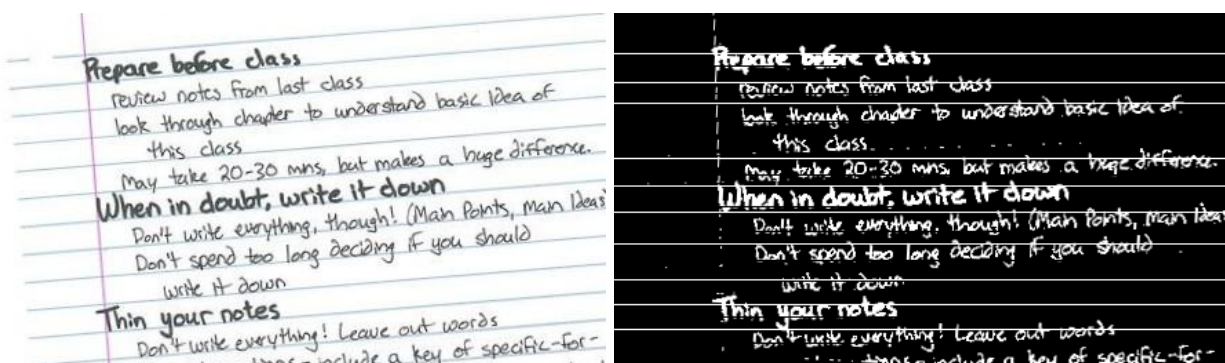 Prepare before class
review notes from last class
look through chapter to understand basic Idea of
this class
May take 20-30 mns, but makes a huge difference.
When in doubt, write it down
Don't write everything, though! (Main Points, main Ideas
Don't spend too long deciding if you should
write it down
Thin your notes
Don't write everything! Leave out words
include a key of specific-for-
Prepare before class
review notes from last class
look through chapter to understand basic Idea of
this class
May take 20-30 mns, but makes a huge difference.
When in doubt, write it down
Don't write everything, though! (Main Points, main Idea
Don't spend too long deciding if you should
write it down
Thin your notes
Don't write everything! Leave out words
include a key of specific-for-